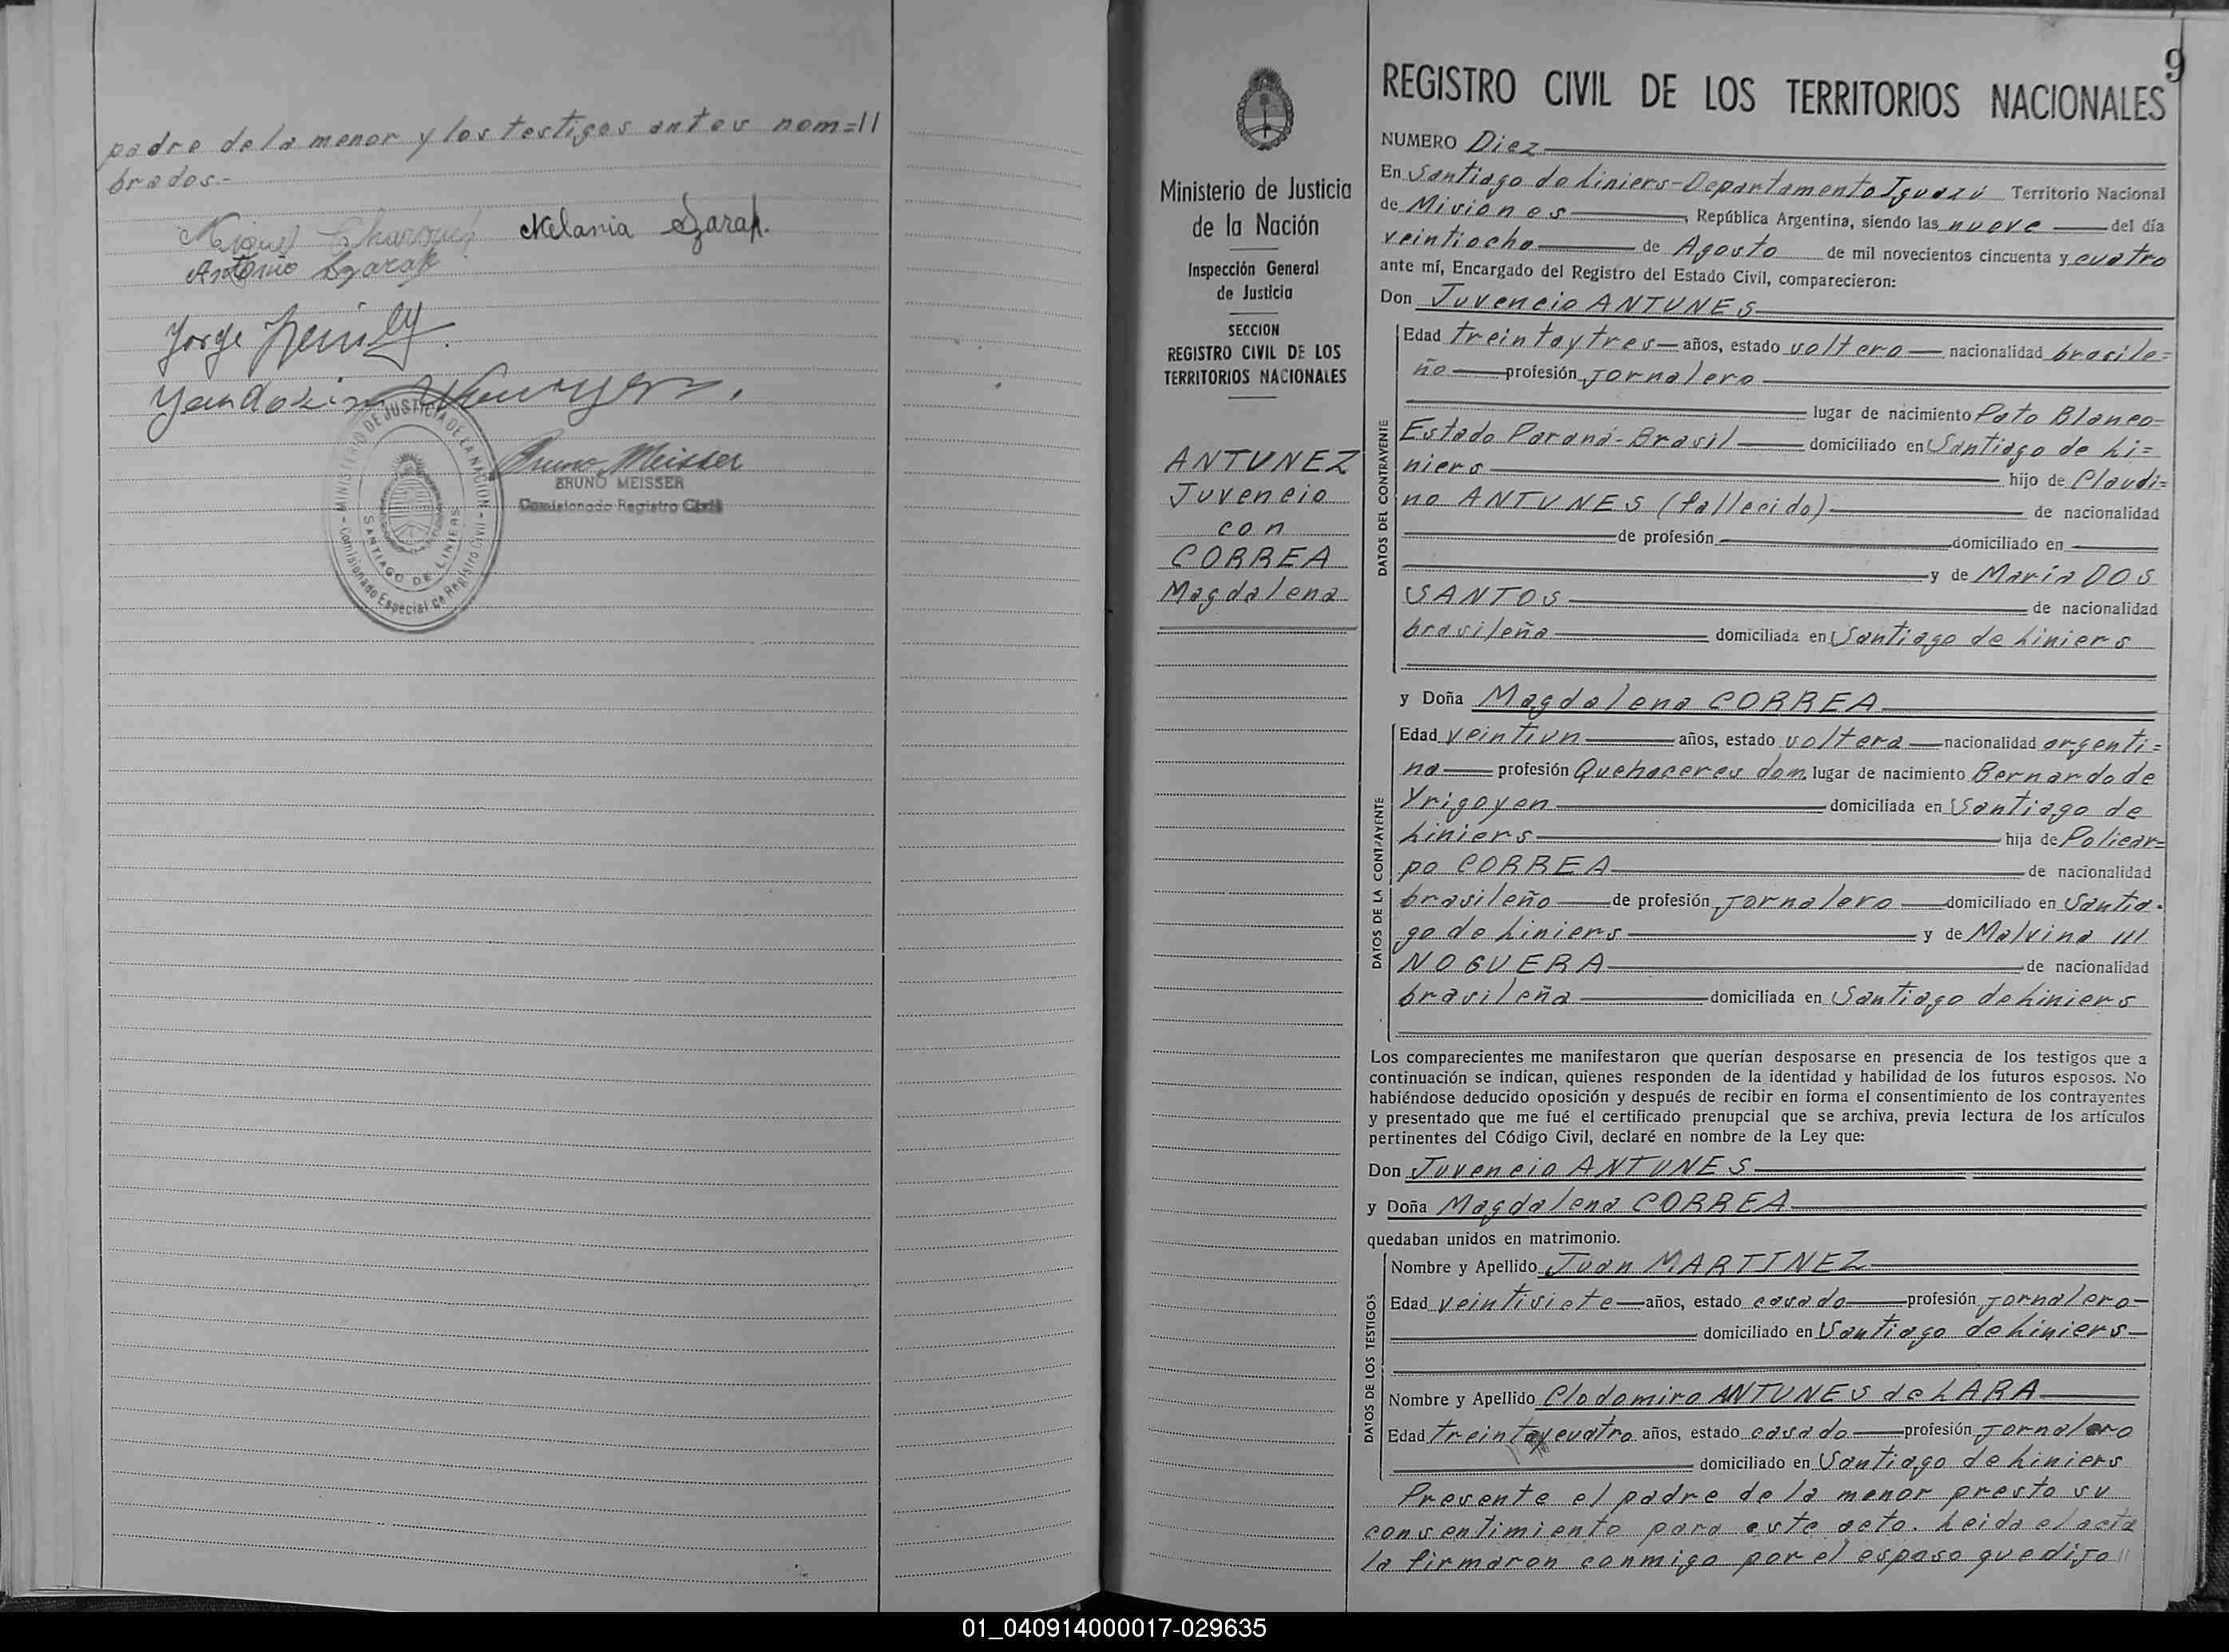 padre de la menor y los testigos antes nom=||
brados.-
Miguel
Melania Szarap.
Antonio Szarap
Jorge
BRUNO MEISSER
Bruno Meisser
Comisionado Registro Civil
MINISTERIO DE JUSTICIA DE LA NACION
SANTIAGO DE LINIERS
Comisionado Especial de Registro Civil
9
Ministerio de Justicia
de la Nación
Inspección General
de Justicia
SECCION
REGISTRO CIVIL DE LOS
TERRITORIOS NACIONALES
ANTUNEZ
Juvencio
con
CORREA
Magdalena
REGISTRO CIVIL DE LOS TERRITORIOS NACIONALES
NUMERO Diez
En Santiago de Liniers-Departamento Iguazú Territorio Nacional
de Misiones, República Argentina, siendo las nueve del día
veintiocho de Agosto de mil novecientos cincuenta y cuatro
ante mí, Encargado del Registro del Estado Civil, comparecieron:
Don Juvencio ANTUNES
DATOS DEL CONTRAYENTE
Edad treinta y tres años, estado soltero nacionalidad brasile=
ño profesión jornalero
lugar de nacimiento Pato Blanco-
Estado Paraná-Brasil domiciliado en Santiago de Li=
niers hijo de Claudi=
no ANTUNES (fallecido) de nacionalidad
de profesión domiciliado en
y de María DOS
SANTOS de nacionalidad
brasileña domiciliada en Santiago de Liniers
y Doña Magdalena CORREA
DATOS DE LA CONTRAYENTE
Edad veintiun años, estado soltera nacionalidad argenti=
na profesión Quehaceres dom. lugar de nacimiento Bernardo de
Yrigoyen domiciliada en Santiago de
Liniers hija de Policar=
po CORREA de nacionalidad
brasileño de profesión jornalero domiciliado en Santia-
go de Liniers y de Malvina ///
NOGUERA de nacionalidad
brasileña domiciliada en Santiago de Liniers
Los comparecientes me manifestaron que querían desposarse en presencia de los testigos que a
continuación se indican, quienes responden de la identidad y habilidad de los futuros esposos. No
habiéndose deducido oposición y después de recibir en forma el consentimiento de los contrayentes
y presentado que me fué el certificado prenupcial que se archiva, previa lectura de los artículos
pertinentes del Código Civil, declaré en nombre de la Ley que:
Don Juvencio ANTUNES
y Doña Magdalena CORREA
quedaban unidos en matrimonio.
DATOS DE LOS TESTIGOS
Nombre y Apellido Juan MARTINEZ
Edad veintisiete años, estado casado profesión jornalero-
domiciliado en Santiago de Liniers-
Nombre y Apellido Clodomiro ANTUNES de LARA
Edad treinta y cuatro años, estado casado profesión jornalero
domiciliado en Santiago de Liniers
Presente el padre de la menor presto su
consentimiento para este acto. Leida el acta
la firmaron conmigo por el esposo que dijo ||
01_040914000017-029635